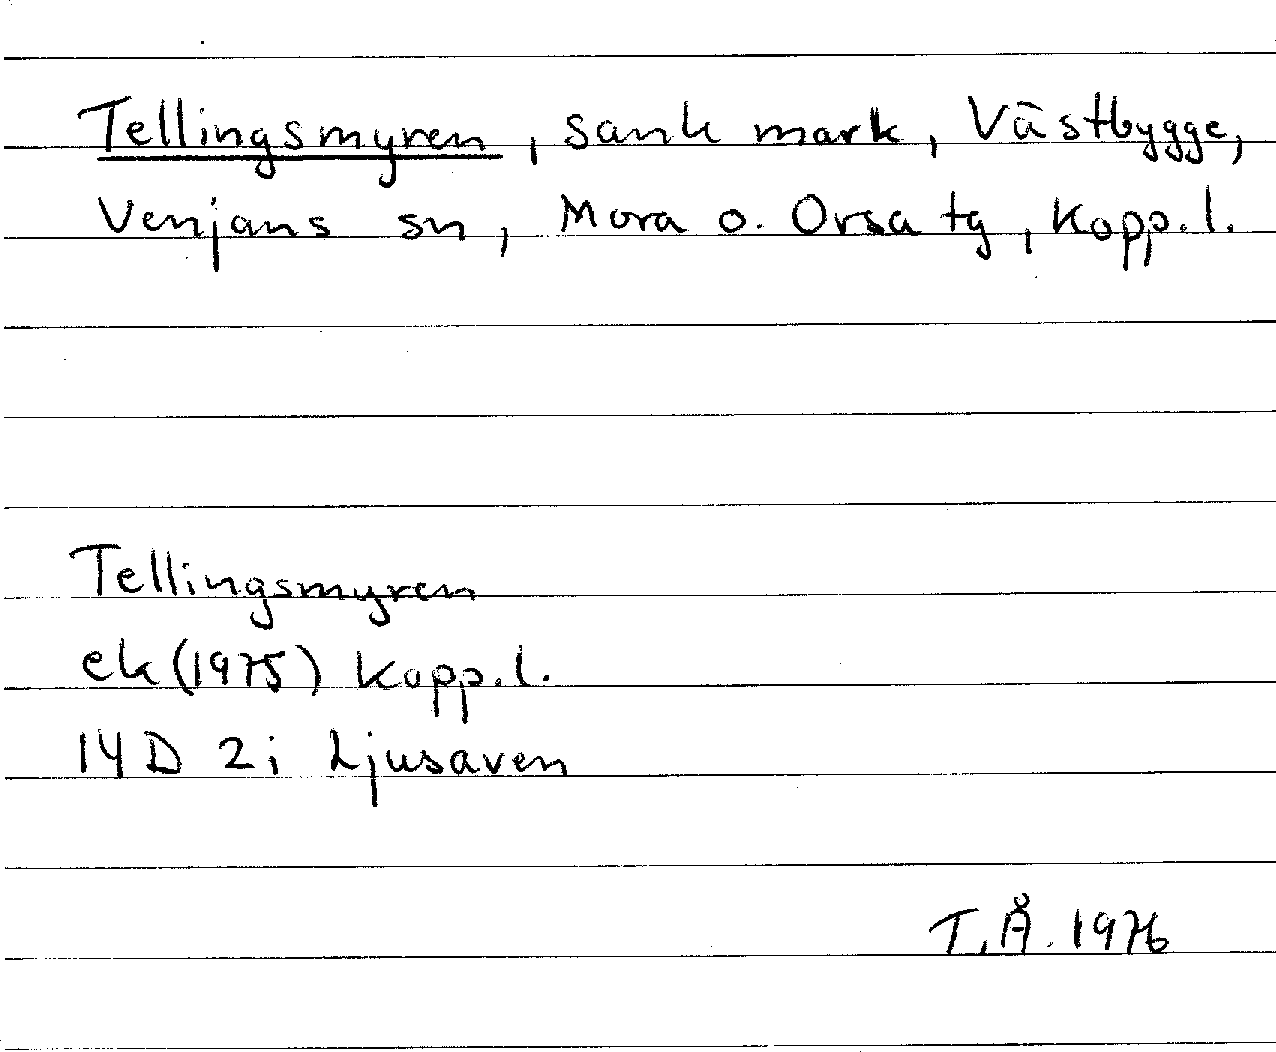 Tellingsmyren, sank mark, Västbygge,
Venjans sn, Mora o. Orsa tg, Kopp.l.
Tellingsmyren
ek (1975) Kopp.l.
14D 2i Ljusaven
T.Å. 1976